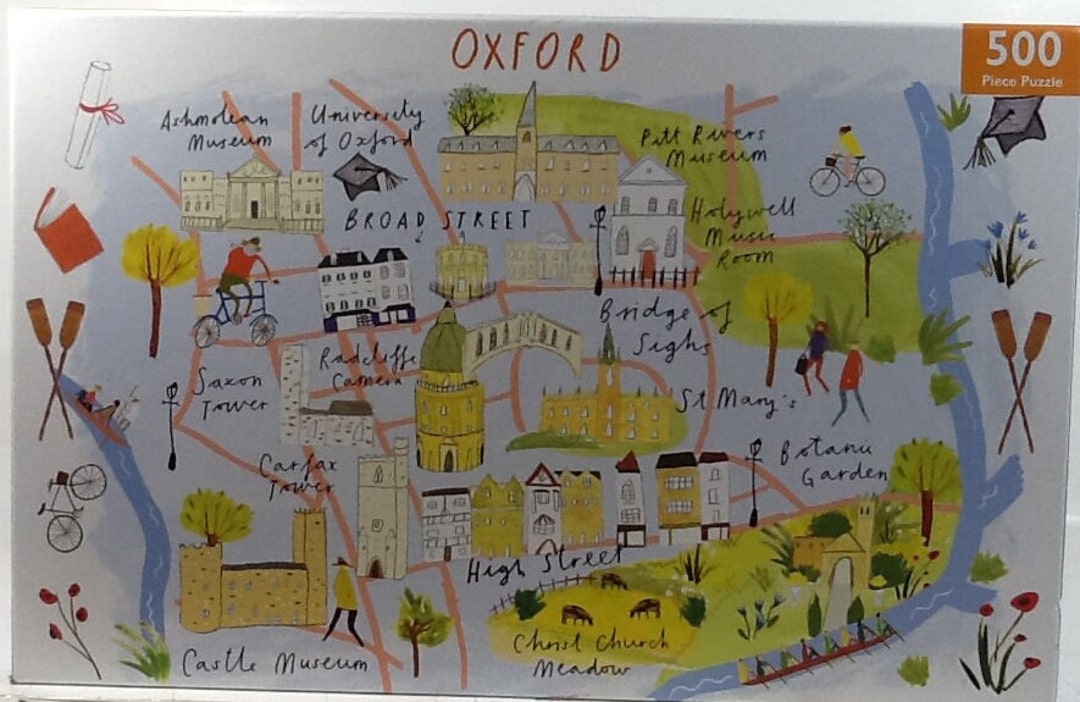 OXFORD
500
Piece Puzzle
Ashmolean
Museum
University
of Oxford
Pitt Rivers
Museum
BROAD STREET
Holywell
Music
Room
Bridge of
Sighs
Radcliffe
Camera
Saxon
Tower
St Mary's
Carfax
Tower
Botanic
Garden
High Street
Christ Church
Meadow
Castle Museum